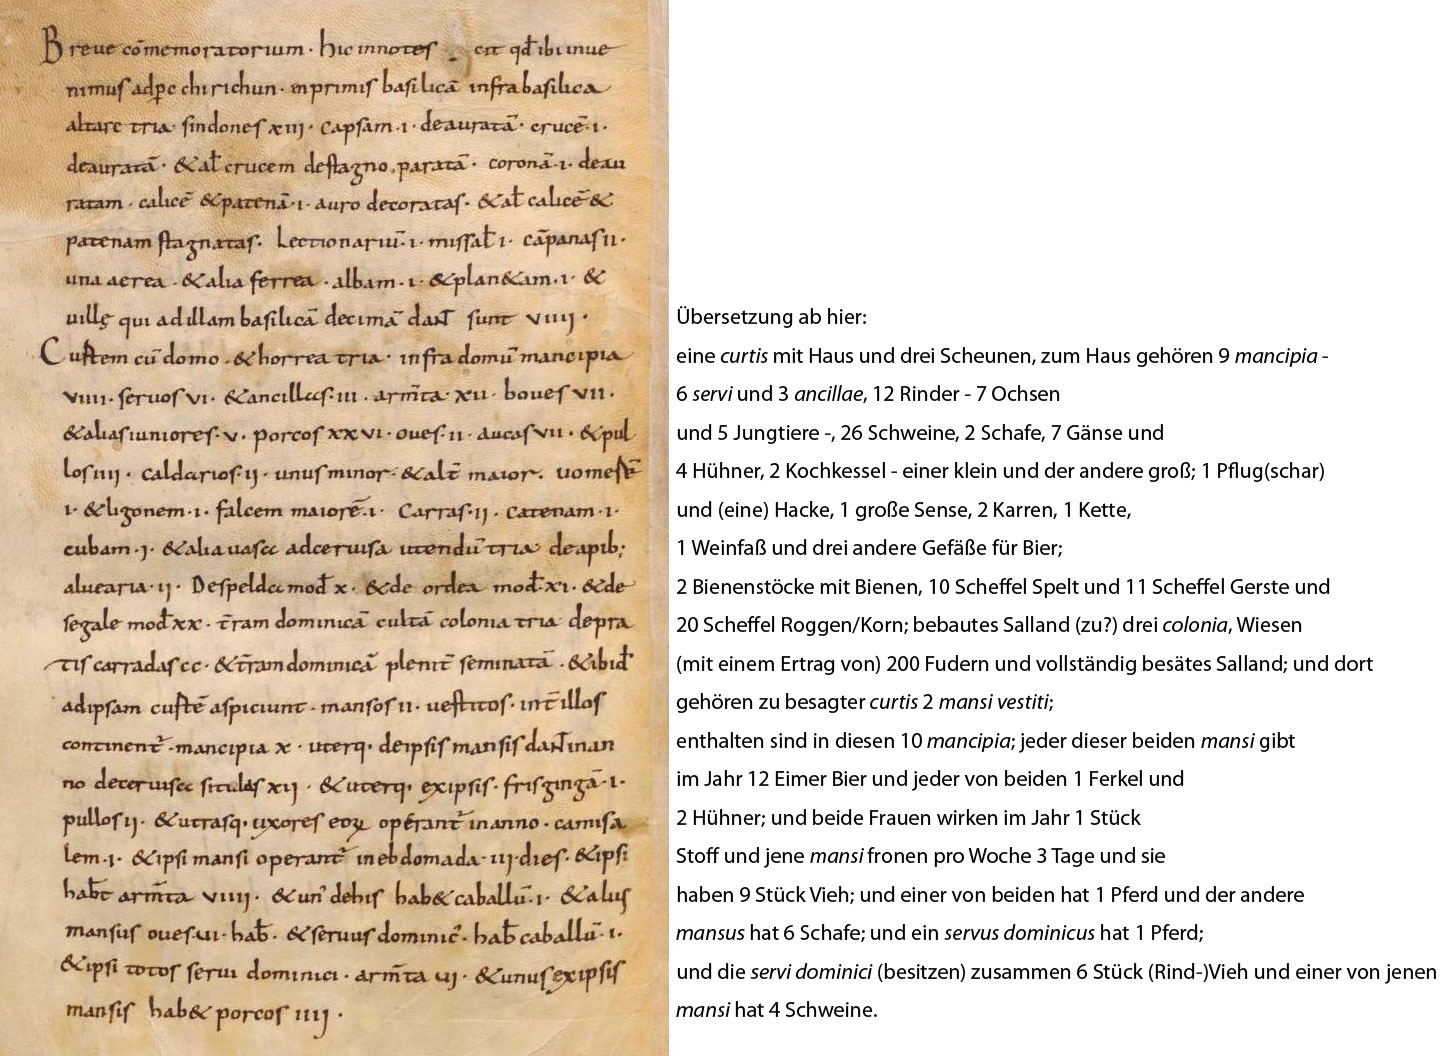 Breue cōmemoratorium · hic innotes cit qđ ibi inue
nimus ad ꝑc chirichun · inprimis basilicā infra basilica
altare tria · sindones xiij · capsam · i · deauratā · crucē · i ·
deauratā · & al̄ crucem de stagno paratā · coronā · i · deau
ratam · calicē & patenā · i · auro decoratas · & al̄ calicē &
patenam stagnatas · Lectionariū · i · missal̄ i · cāpanas ii ·
una aerea · & alia ferrea · albam · i · & plan&am · i · &
uillę qui ad illam basilicā decimā dant sunt viiij ·
Curtem cū domo · & horrea tria · infra domū mancipia
viiii · seruos vi · & ancillas · iii · arm̄ta · xii · boues vii ·
& alias iuniores · v · porcos xxvi · oues · ii · aucas vii · & pul
los iiii · caldarios · ii · unus minor · & alt̄ maior · uomerē
i · & ligonem · i · falcem maiorē · i · Carras · ii · catenam · i ·
cubam · i · & alia uasa ad ceruisa utendū tria de apib;
aluearia · ii · De spelda mod̄ x · & de ordea mod̄ · xi · & de
segale mod̄ xx · t̄ram dominicā cultā colonia tria de pra
tis carradas cc · & t̄ram dominicā plenit̄ seminatā · & ibid̄
ad ipsam curtē aspiciunt · mansos ii · uestitos · int̄ illos
continent̄ · mancipia x · uterq; de ipsis mansis dant in an
no de ceruisa situlas xii · & uterq; ex ipsis · frisgingā · i ·
pullos ii · & utrasq; uxores eoꝝ operant̄ in anno · camisa
lem · i · & ipsi mansi operant̄ in ebdomada · iii · dies · & ipsi
hab̄t arm̄ta viiii · & un̄ de his hab& caballū · i · & alius
mansus oues · ui · hab̄ · & seruus dominic̄ · hab̄ caballū · i ·
& ipsi totos serui dominici · arm̄ta ui · & unus ex ipsis
mansis hab& porcos iiii ·
Übersetzung ab hier:
eine curtis mit Haus und drei Scheunen, zum Haus gehören 9 mancipia -
6 servi und 3 ancillae, 12 Rinder - 7 Ochsen
und 5 Jungtiere -, 26 Schweine, 2 Schafe, 7 Gänse und
4 Hühner, 2 Kochkessel - einer klein und der andere groß; 1 Pflug(schar)
und (eine) Hacke, 1 große Sense, 2 Karren, 1 Kette,
1 Weinfaß und drei andere Gefäße für Bier;
2 Bienenstöcke mit Bienen, 10 Scheffel Spelt und 11 Scheffel Gerste und
20 Scheffel Roggen/Korn; bebautes Salland (zu?) drei colonia, Wiesen
(mit einem Ertrag von) 200 Fudern und vollständig besätes Salland; und dort
gehören zu besagter curtis 2 mansi vestiti;
enthalten sind in diesen 10 mancipia; jeder dieser beiden mansi gibt
im Jahr 12 Eimer Bier und jeder von beiden 1 Ferkel und
2 Hühner; und beide Frauen wirken im Jahr 1 Stück
Stoff und jene mansi fronen pro Woche 3 Tage und sie
haben 9 Stück Vieh; und einer von beiden hat 1 Pferd und der andere
mansus hat 6 Schafe; und ein servus dominicus hat 1 Pferd;
und die servi dominici (besitzen) zusammen 6 Stück (Rind-)Vieh und einer von jenen
mansi hat 4 Schweine.